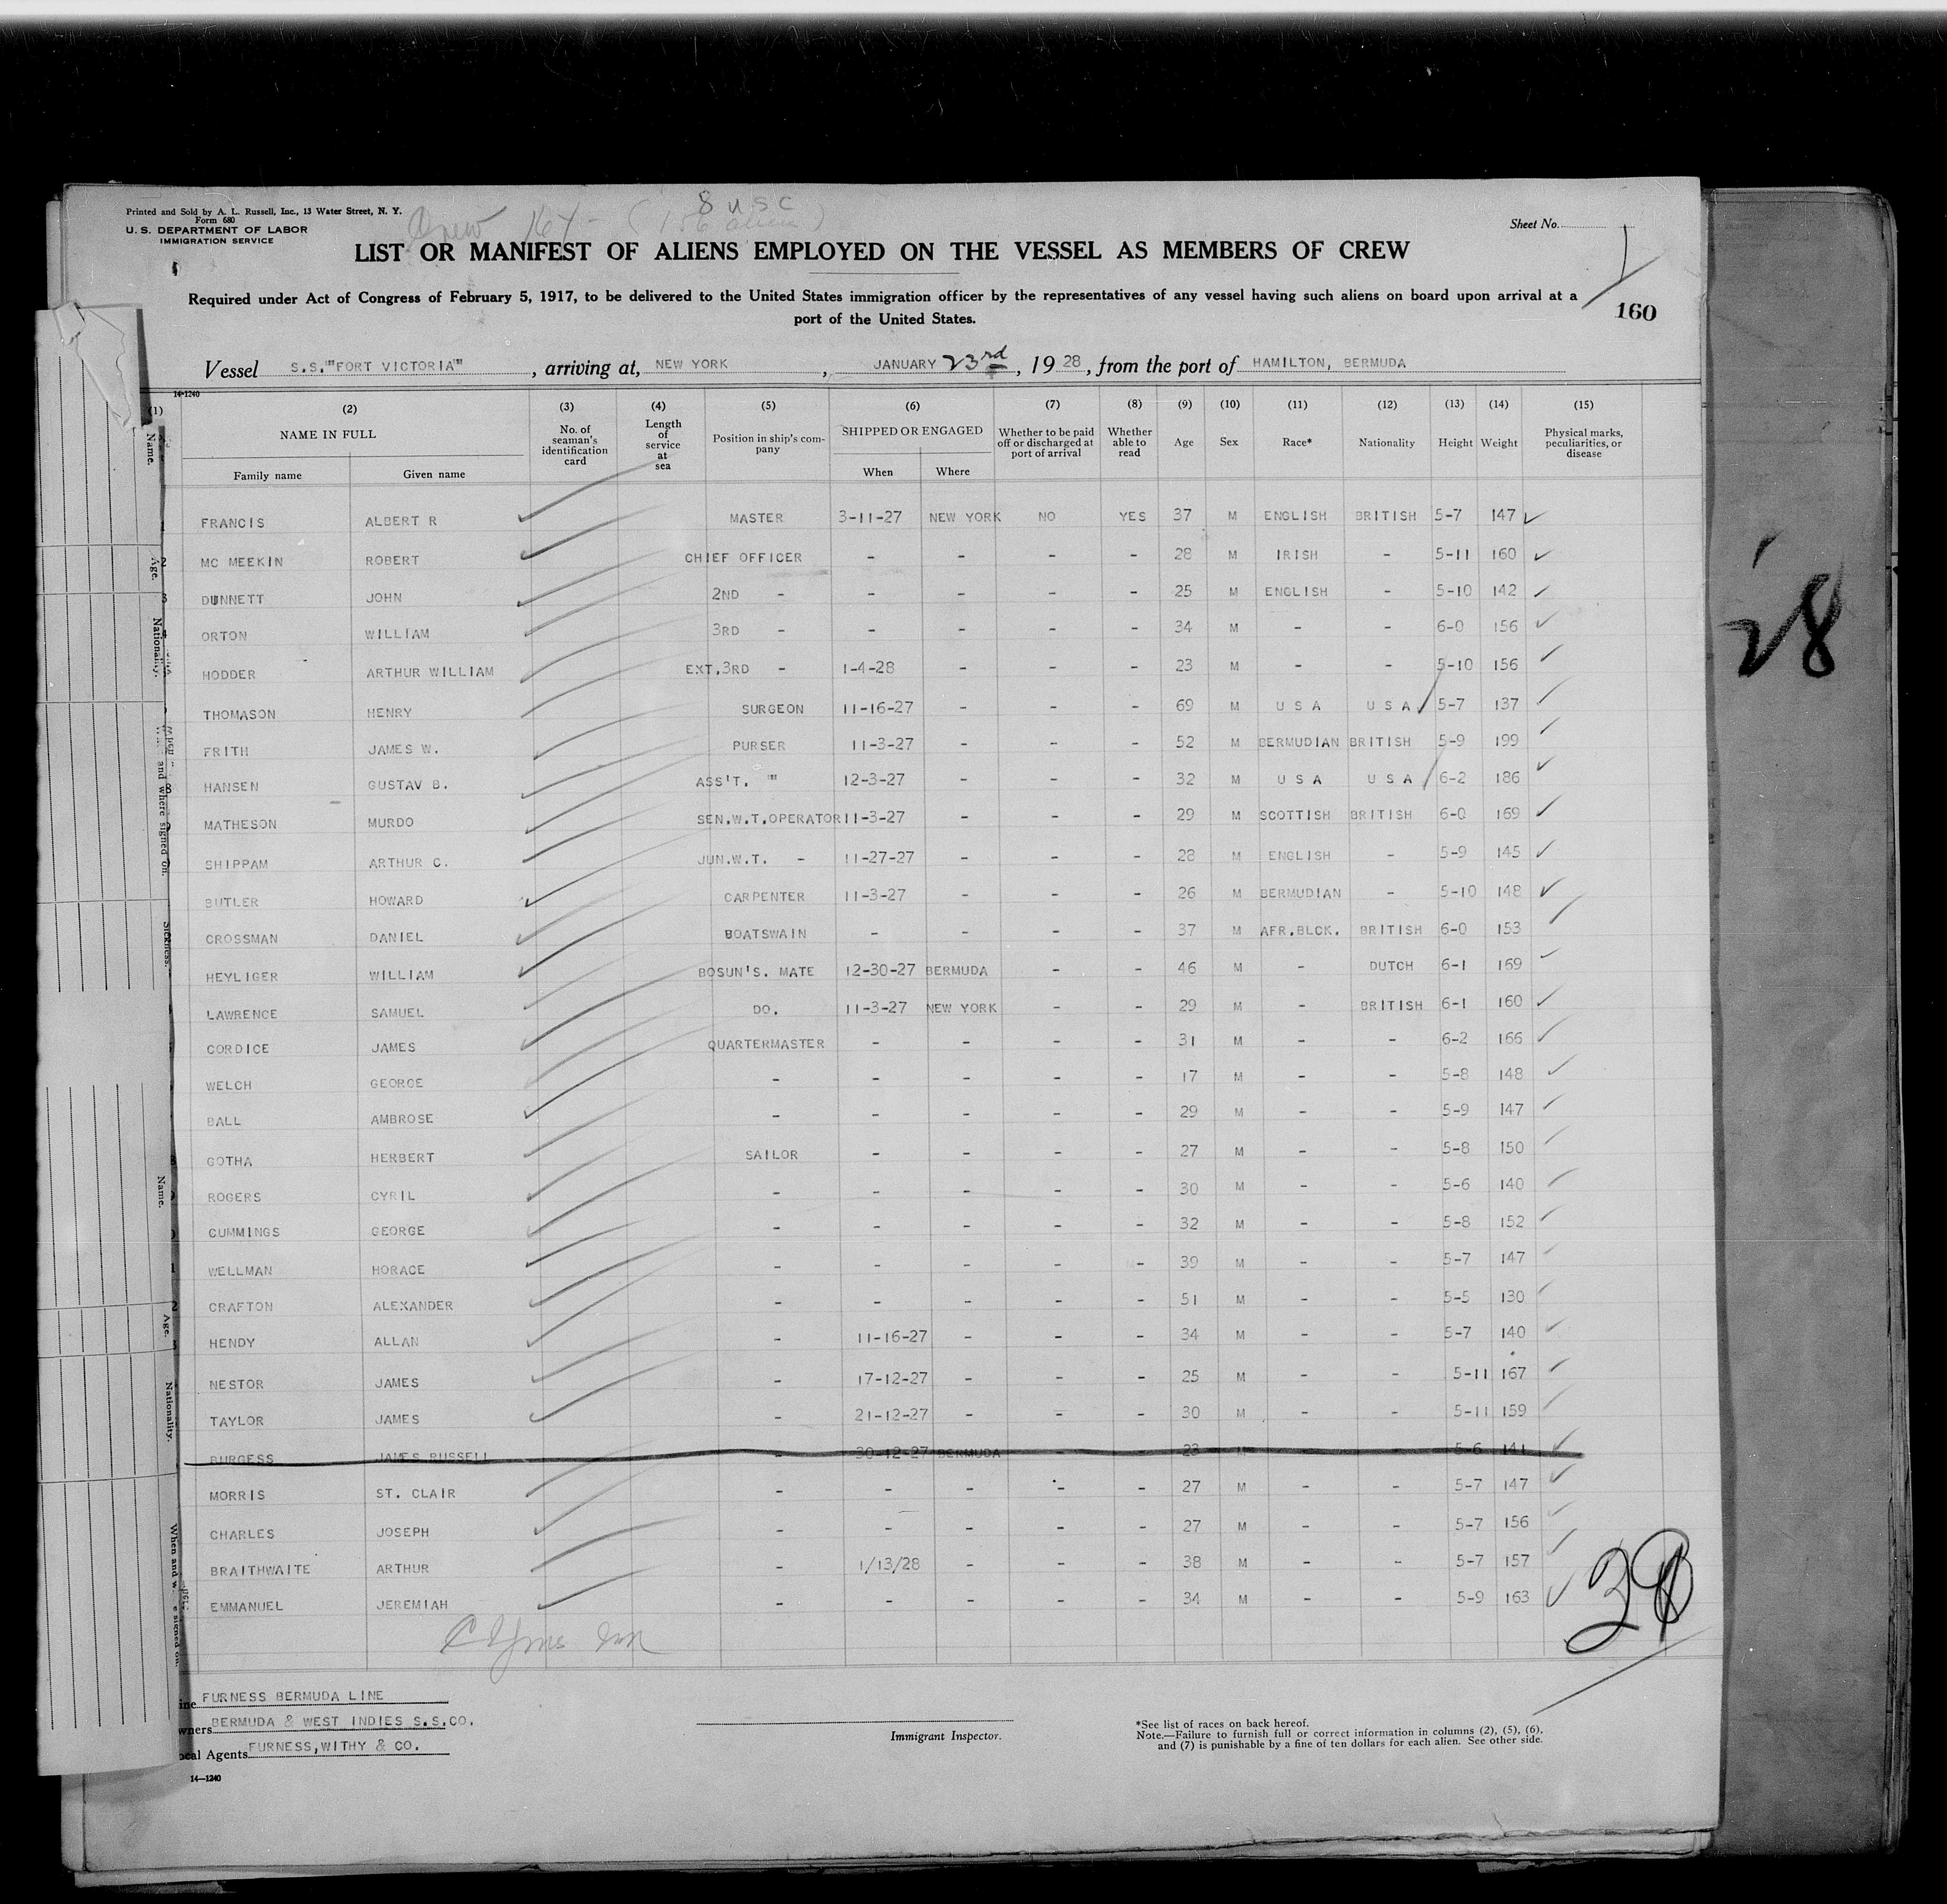 Printed and Sold by A. L. Russell, Inc., 13 Water Street, N. Y.
Form 680
U. S. DEPARTMENT OF LABOR
IMMIGRATION SERVICE
Crew 164 - (8 USC
156 aliens)
Sheet No. 1
LIST OR MANIFEST OF ALIENS EMPLOYED ON THE VESSEL AS MEMBERS OF CREW
Required under Act of Congress of February 5, 1917, to be delivered to the United States immigration officer by the representatives of any vessel having such aliens on board upon arrival at a
port of the United States.
160
Vessel S.S."FORT VICTORIA", arriving at, NEW YORK, JANUARY 23rd, 1928, from the port of HAMILTON, BERMUDA
14-1240
(1) (2) (3) (4) (5) (6) (7) (8) (9) (10) (11) (12) (13) (14) (15)
NAME IN FULL
Family name Given name
No. of seaman's identification card
Length of service at sea
Position in ship's company
SHIPPED OR ENGAGED
When Where
Whether to be paid off or discharged at port of arrival
Whether able to read
Age Sex Race* Nationality Height Weight
Physical marks, peculiarities, or disease
FRANCIS ALBERT R MASTER 3-11-27 NEW YORK NO YES 37 M ENGLISH BRITISH 5-7 147
MC MEEKIN ROBERT CHIEF OFFICER - - - - 28 M IRISH - 5-11 160
DUNNETT JOHN 2ND - - - - - 25 M ENGLISH - 5-10 142
ORTON WILLIAM 3RD - - - - - 34 M - - 6-0 156
HODDER ARTHUR WILLIAM EXT.3RD - 1-4-28 - - - 23 M - - 5-10 156
THOMASON HENRY SURGEON 11-16-27 - - - 69 M U S A U S A 5-7 137
FRITH JAMES W. PURSER 11-3-27 - - - 52 M BERMUDIAN BRITISH 5-9 199
HANSEN GUSTAV B. ASS'T. " 12-3-27 - - - 32 M U S A U S A 6-2 186
MATHESON MURDO SEN.W.T.OPERATOR 11-3-27 - - - 29 M SCOTTISH BRITISH 6-0 169
SHIPPAM ARTHUR C. JUN.W.T. - 11-27-27 - - - 28 M ENGLISH - 5-9 145
BUTLER HOWARD CARPENTER 11-3-27 - - - 26 M BERMUDIAN - 5-10 148
CROSSMAN DANIEL BOATSWAIN - - - - 37 M AFR.BLCK. BRITISH 6-0 153
HEYLIGER WILLIAM BOSUN'S. MATE 12-30-27 BERMUDA - - 46 M - DUTCH 6-1 169
LAWRENCE SAMUEL DO. 11-3-27 NEW YORK - - 29 M - BRITISH 6-1 160
CORDICE JAMES QUARTERMASTER - - - - 31 M - - 6-2 166
WELCH GEORGE - - - - - 17 M - - 5-8 148
BALL AMBROSE - - - - - 29 M - - 5-9 147
GOTHA HERBERT SAILOR - - - - 27 M - - 5-8 150
ROGERS CYRIL - - - - - 30 M - - 5-6 140
CUMMINGS GEORGE - - - - - 32 M - - 5-8 152
WELLMAN HORACE - - - - - 39 M - - 5-7 147
CRAFTON ALEXANDER - - - - - 51 M - - 5-5 130
HENDY ALLAN - 11-16-27 - - - 34 M - - 5-7 140
NESTOR JAMES - 17-12-27 - - - 25 M - - 5-11 167
TAYLOR JAMES - 21-12-27 - - - 30 M - - 5-11 159
BURGESS JAMES RUSSELL - 30-12-27 BERMUDA - - 23 M - - 5-6 141
MORRIS ST. CLAIR - - - - - 27 M - - 5-7 147
CHARLES JOSEPH - - - - - 27 M - - 5-7 156
BRAITHWAITE ARTHUR - 1/13/28 - - - 38 M - - 5-7 157
EMMANUEL JEREMIAH - - - - - 34 M - - 5-9 163
FURNESS BERMUDA LINE
BERMUDA & WEST INDIES S.S.CO.
Agents FURNESS,WITHY & CO.
14-1240
Immigrant Inspector.
*See list of races on back hereof.
Note.—Failure to furnish full or correct information in columns (2), (5), (6),
and (7) is punishable by a fine of ten dollars for each alien. See other side.
Name.
Age.
Nationality.
and where signed on.
Sickness.
Name.
Age.
Nationality.
28